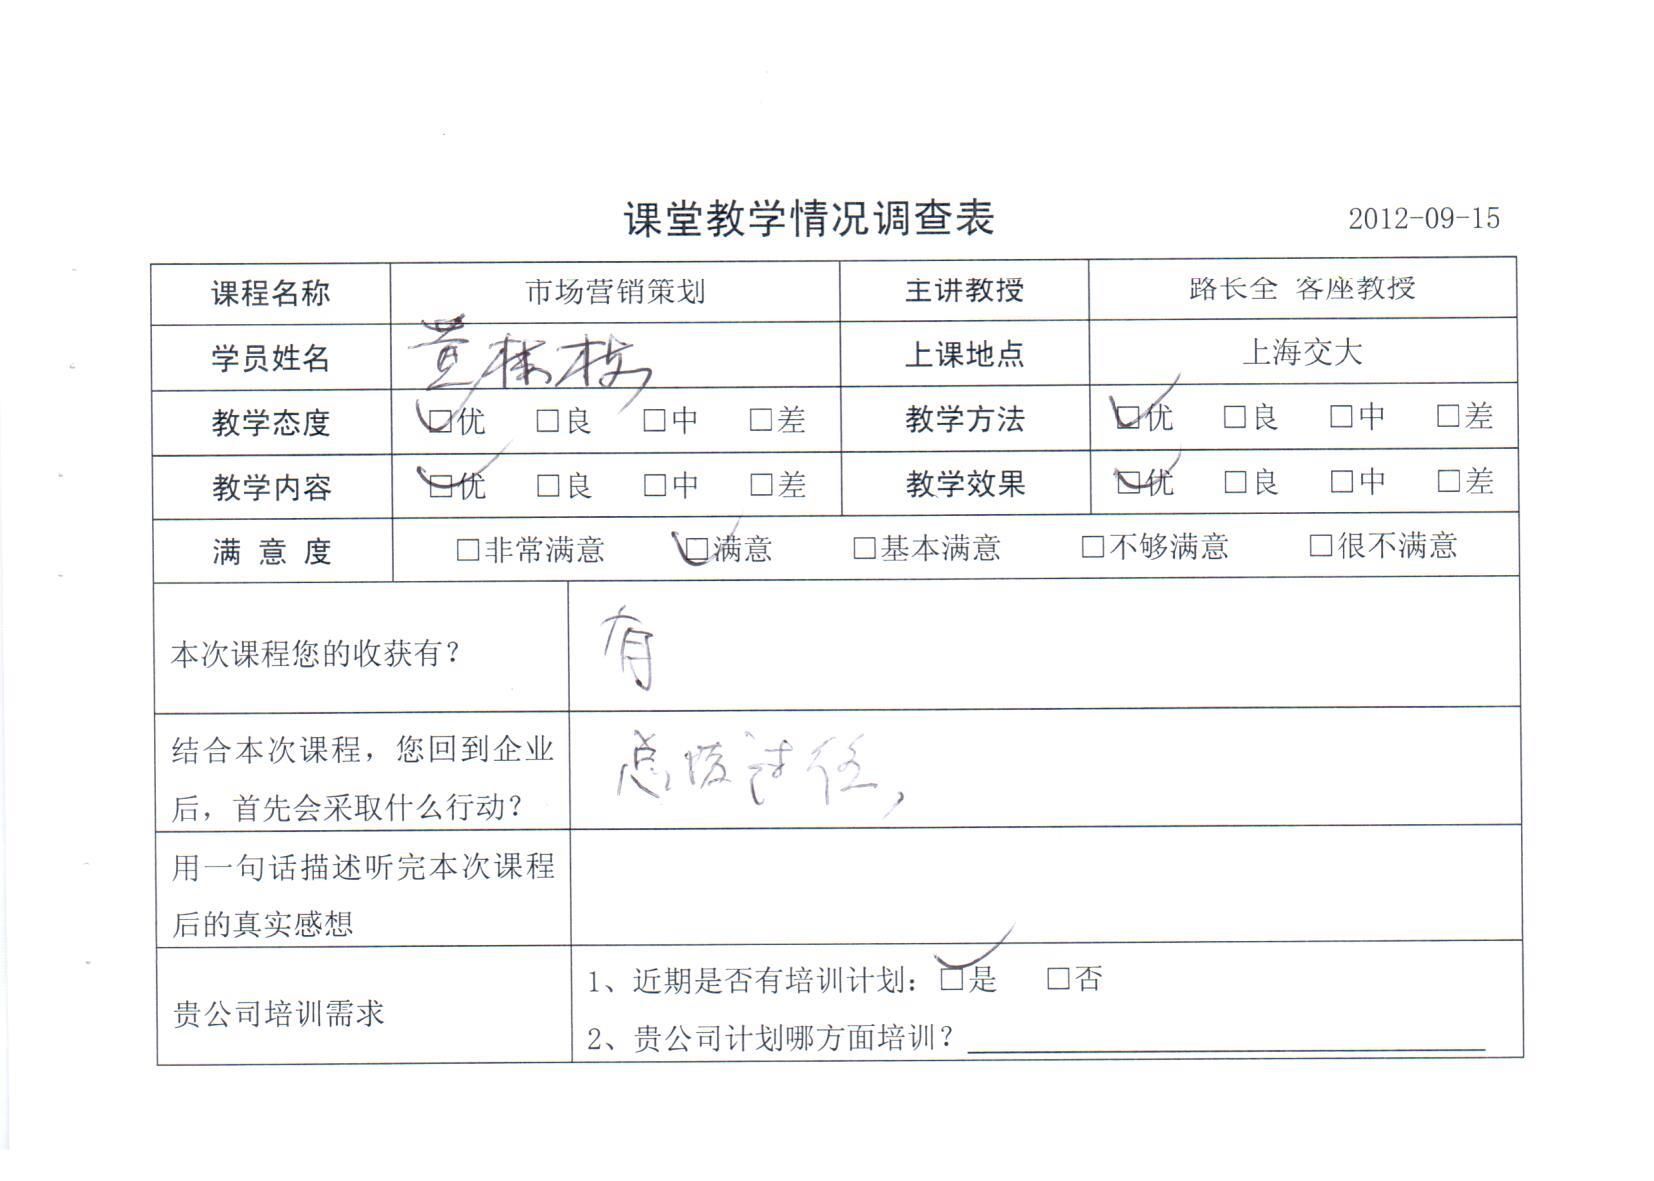 课堂教学情况调查表 2012-09-15
课程名称 市场营销策划 主讲教授 路长全 客座教授
学员姓名 黄 枝 上课地点 上海交大
教学态度 □优 □良 □中 □差 教学方法 □优 □良 □中 □差
教学内容 □优 □良 □中 □差 教学效果 □优 □良 □中 □差
满 意 度 □非常满意 □满意 □基本满意 □不够满意 □很不满意
本次课程您的收获有? 有
结合本次课程，您回到企业
后，首先会采取什么行动?
用一句话描述听完本次课程
后的真实感想
贵公司培训需求
1、近期是否有培训计划：□是 □否
2、贵公司计划哪方面培训?